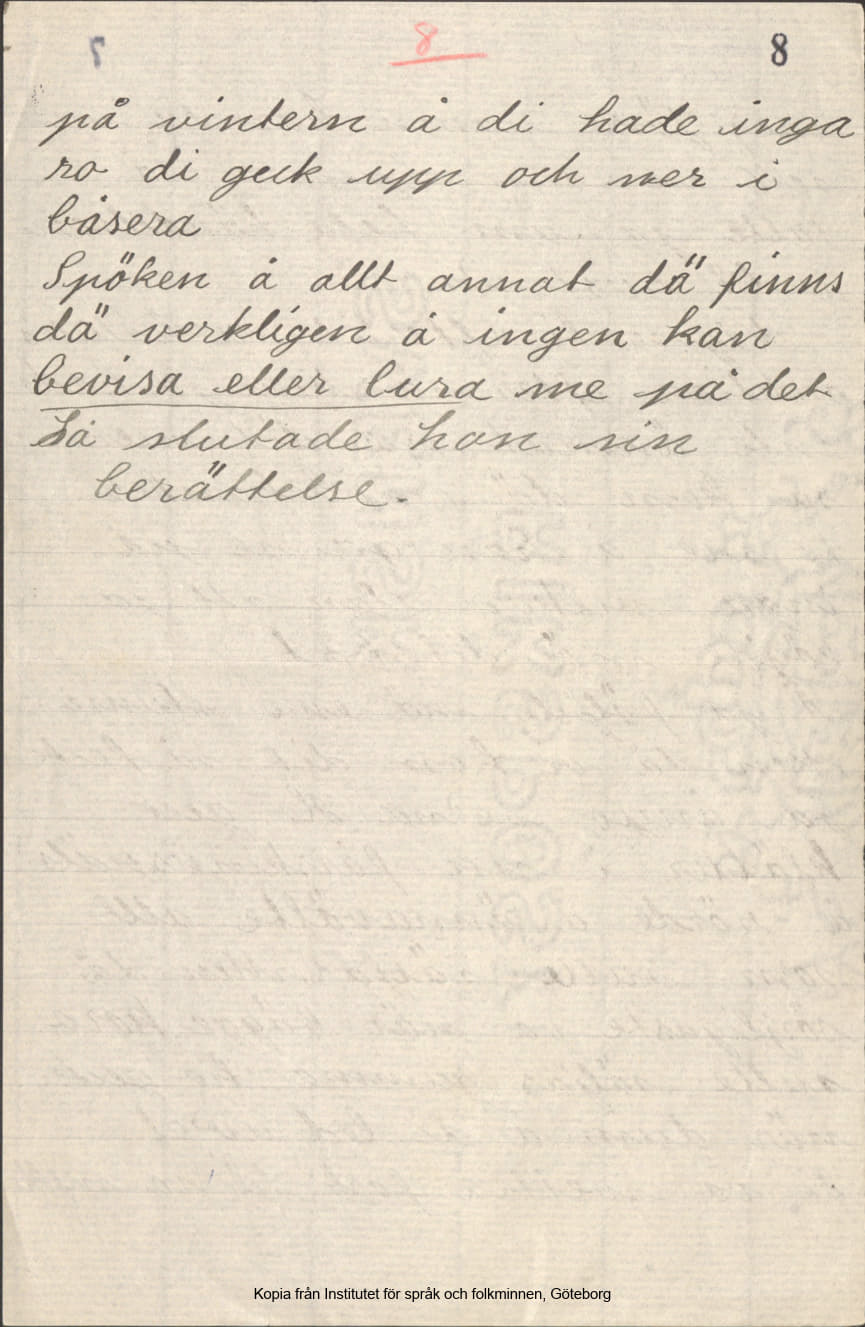 8 8
på vintern å di hade inga
ro di geck upp och ner i
båsera
Spöken å allt annat dä finns
dä verkligen å ingen kan
bevisa eller lura me på det
Så slutade han sin
berättelse.
Kopia från Institutet för språk och folkminnen, Göteborg